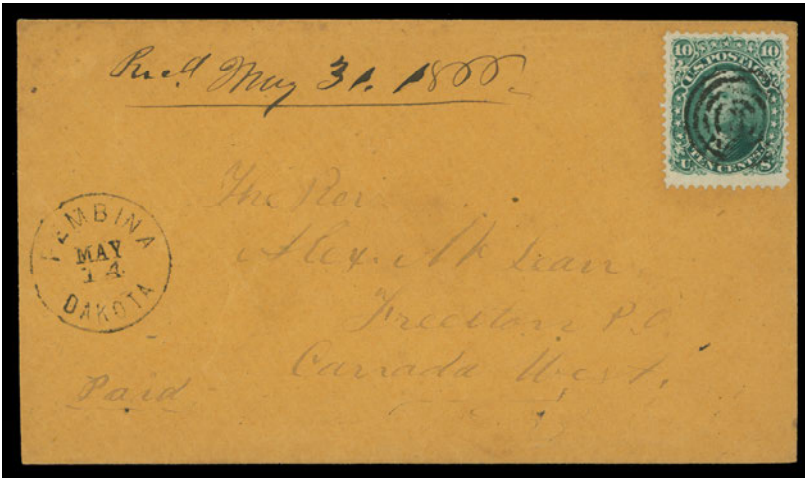 Rec'd May 31. 1866.
10 10
U.S. POSTAGE
TEN CENTS
U S
PEMBINA
MAY
14
DAKOTA
The Rev
Alex. McLean
P.O.
Canada West.
Paid